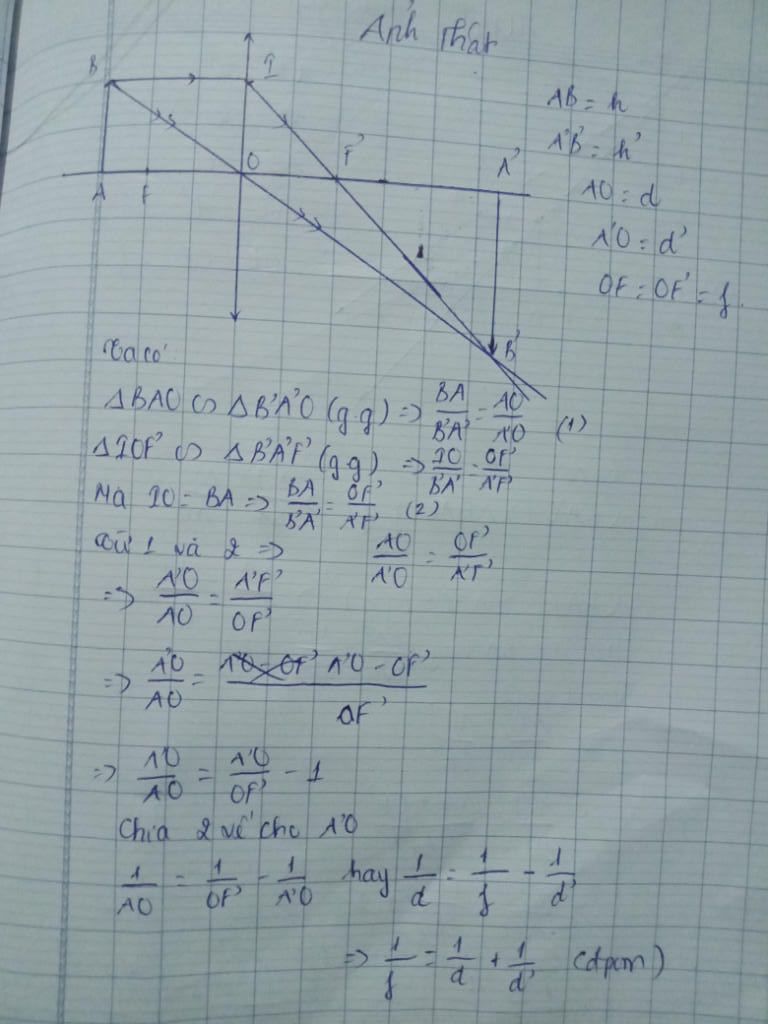 Ảnh thật
B I
A F O F' A'
B'
AB = h
A'B' = h'
AO = d
A'O = d'
OF = OF' = f
Ta có
ΔBAO ∽ ΔB'A'O (g.g) => BA/B'A' = AO/A'O (1)
ΔIOF' ∽ ΔB'A'F' (g.g) => IO/B'A' = OF'/A'F'
Mà IO = BA => BA/B'A' = OF'/A'F' (2)
Từ 1 và 2 => AO/A'O = OF'/A'F'
=> A'O/AO = A'F'/OF'
=> A'O/AO = A'O - OF'/OF'
=> A'O/AO = A'O/OF' - 1
Chia 2 vế cho A'O
1/AO = 1/OF' - 1/A'O hay 1/d = 1/f - 1/d'
=> 1/f = 1/d + 1/d' (đpcm)